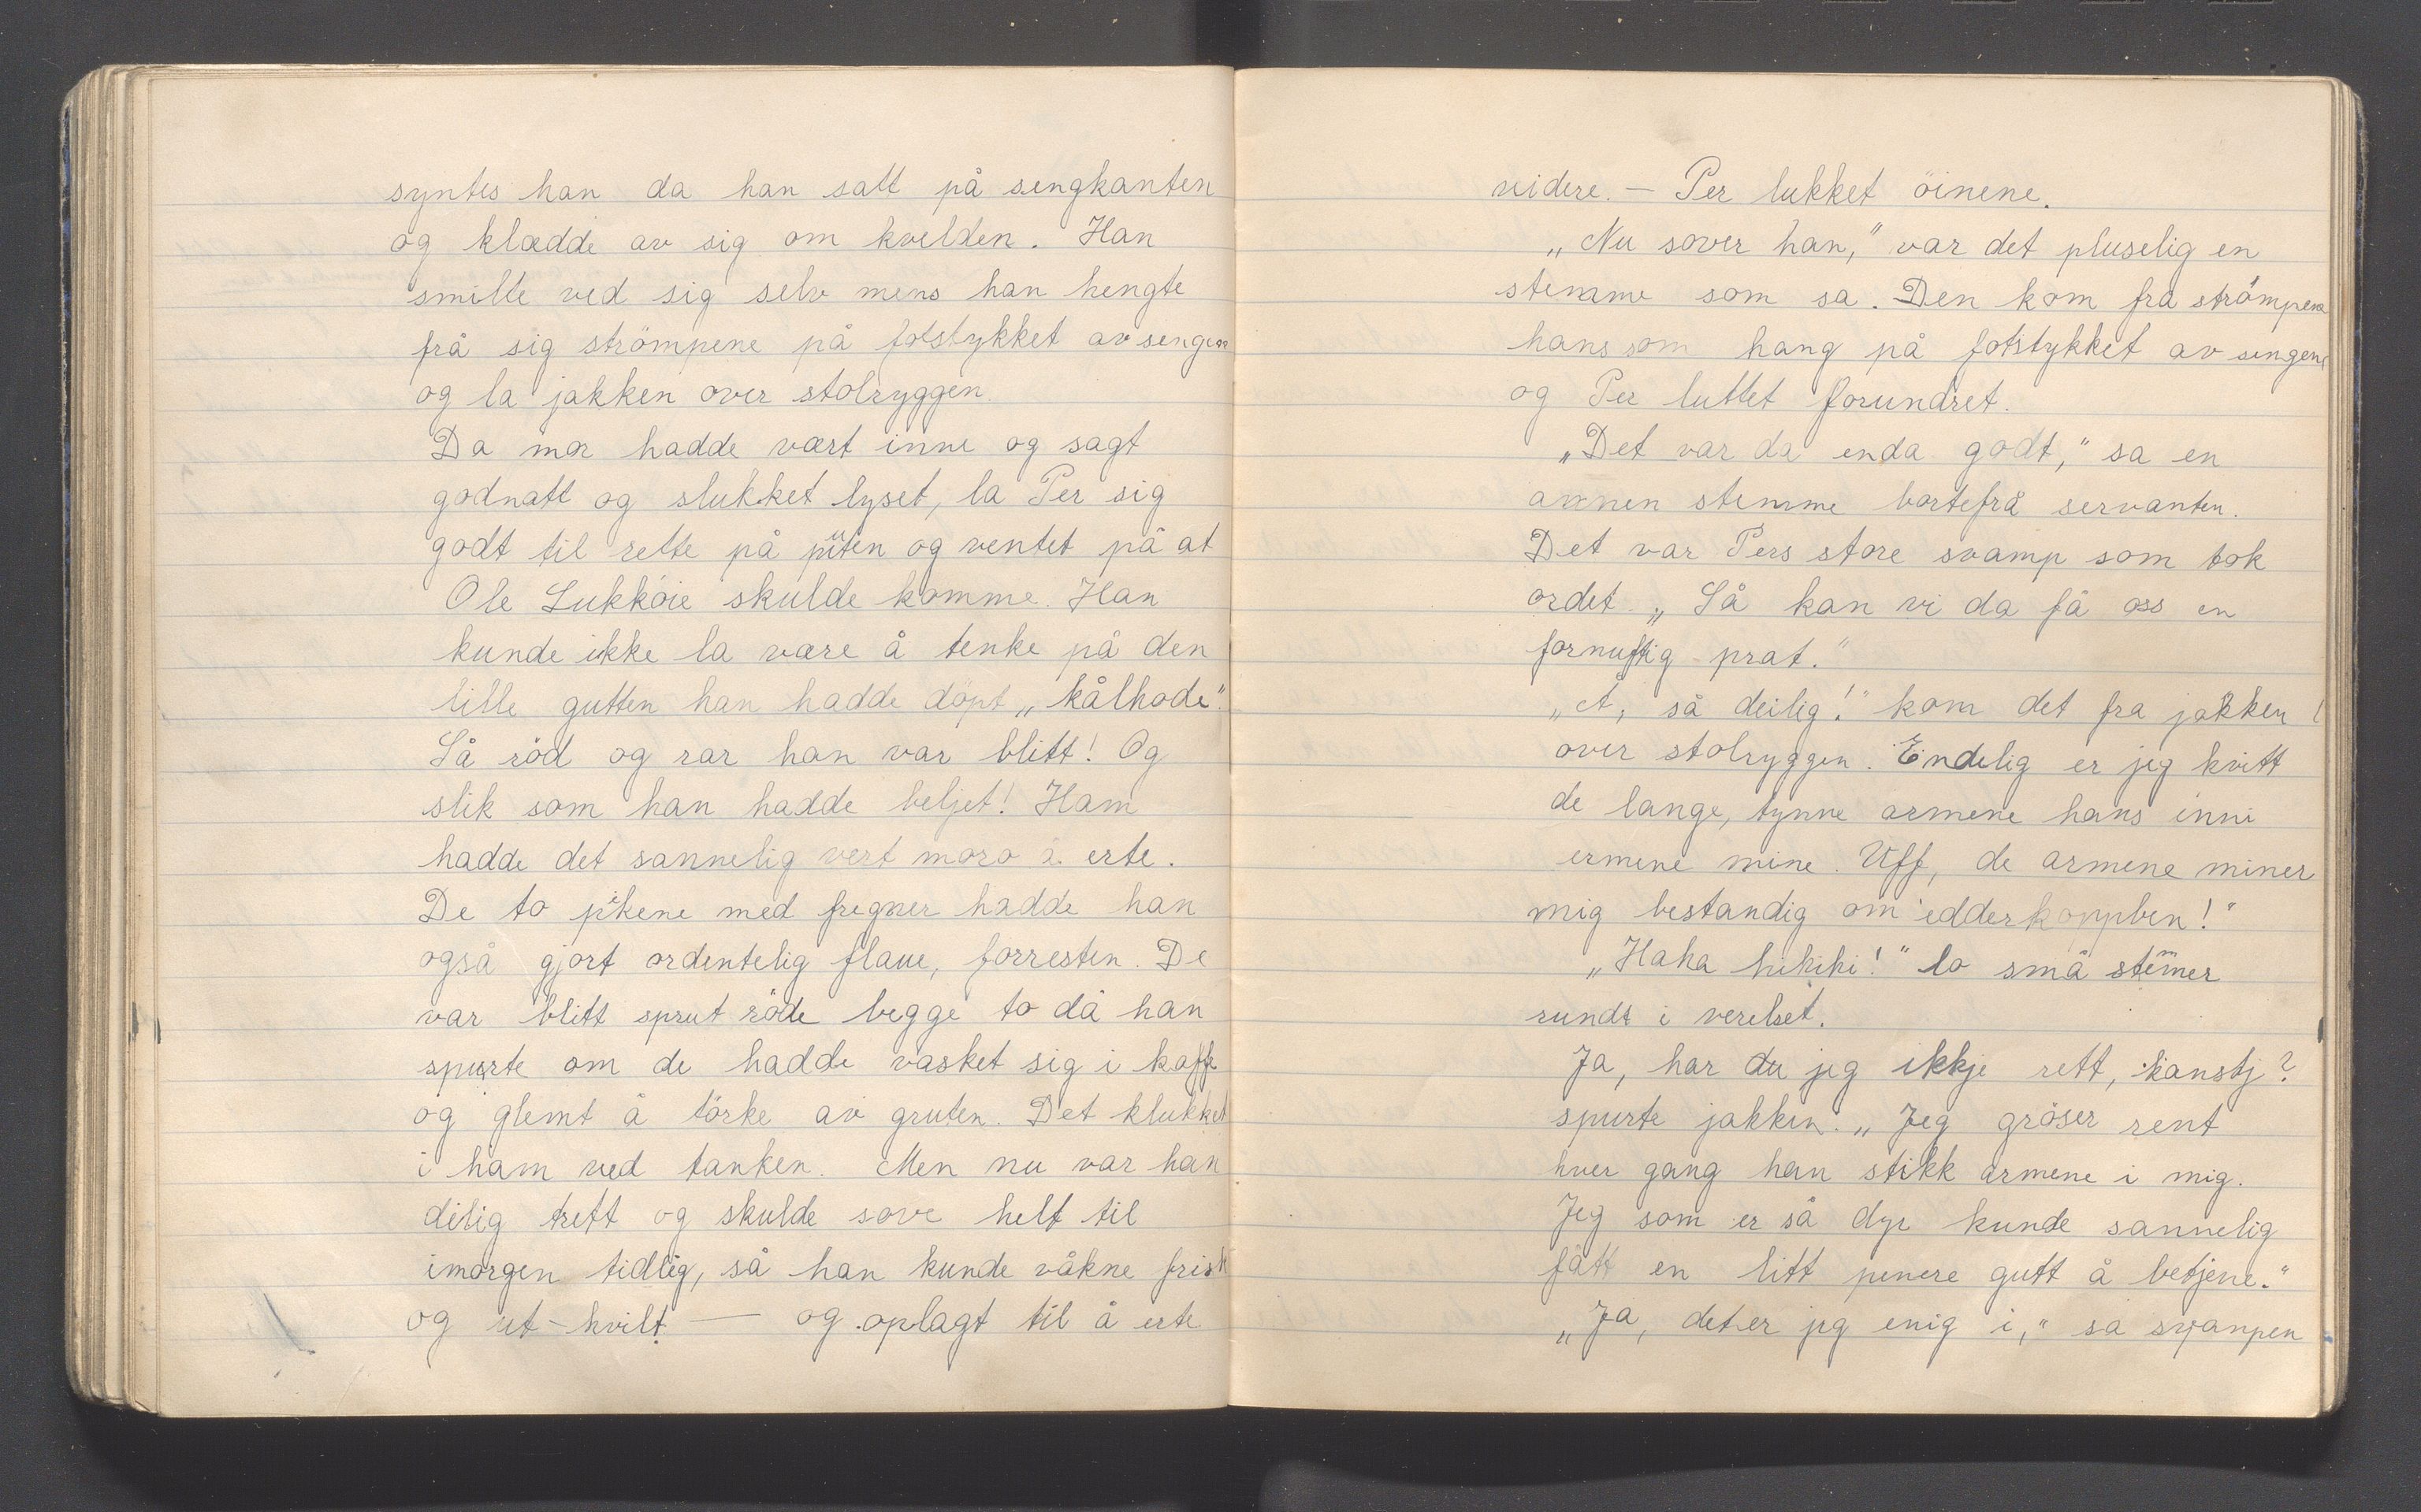 syntes han da han satt på sengkanten
og klædde av sig om kvelden. Han
smilte ved sig selv mens han hengte
frå sig strömpene på fotstykket av sengen
og la jakken over stolryggen.
Da mor hadde vært inne og sagt
godnatt og slukket lyset, la Per sig
godt til rette på puten og ventet på at
Ole Lukköie skulde komme. Han
kunde ikke la være å tenke på den
lille gutten han hadde döpt „kålhode".
Så röd og rar han var blitt! Og
slik som han hadde beljet! Ham
hadde det sannelig vert moro å erte.
De to pikene med fregner hadde han
også gjort ordentelig flaue, forresten. De
var blitt sprut röde begge to då han
spurte om de hadde vasket sig i kaffe
og glemt å törke av gruten. Det klukket
i ham ved tanken. Men nu var han
dilig trett og skulde sove helt til
imorgen tidlig, så han kunde våkne frisk
og ut-kvilt — og oplagt til å erte
videre. — Per lukket öinene.
„Nu sover han," var det pluselig en
stemme som sa. Den kom frå strömpene
hans som hang på fotstykket av sengen
og Per luttet forundret.
„Det var da enda godt," sa en
annen stemme bortefrå servanten.
Det var Pers store svamp som tok
ordet. „Så kan vi da få oss en
fornuftig prat."
„A, så deilig!" kom det fra jakken
over stolryggen. Endelig er jeg kvitt
de lange, tynne armene hans inni
ermene mine. Uff, de armene miner
mig bestandig om edderkoppben!"
„Haha hihihi!" lo små stemer
rundt i verelset.
Ja, har du jeg ikkje rett, kanstj?
spurte jakken. „Jeg gröser rent
hver gang han stikk armene i mig.
Jeg som er så dyr kunde sannelig
fått en litt penere gutt å betjene."
„Ja, det er jeg enig i," sa svampen